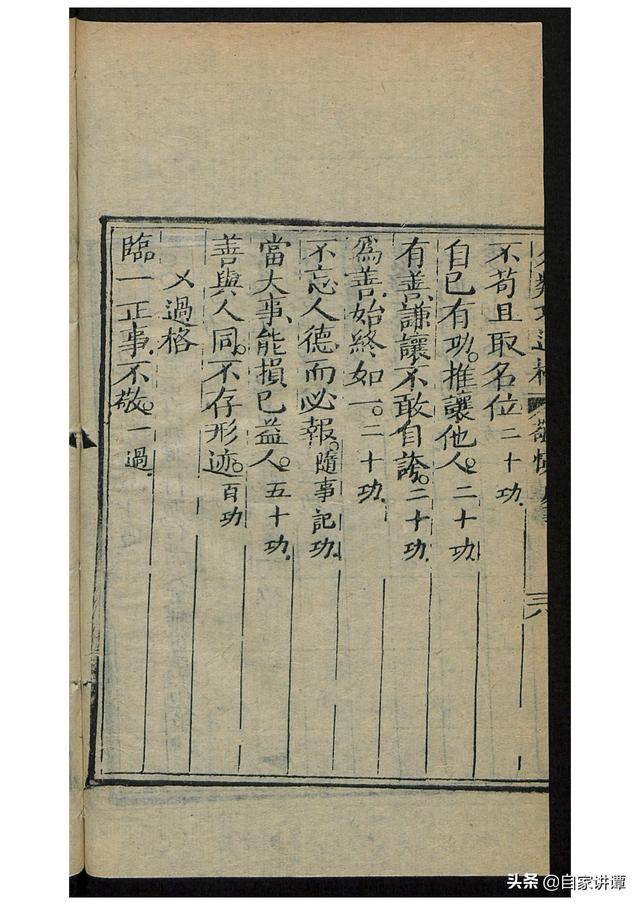 不苟且取名位 二十功
自己有功。推讓他人。二十功
有善謙讓不敢自誇。二十功
為善始終如一。二十功
不忘人德而必報。隨事記功
當大事能損己益人。五十功
善與人同。不存形迹。百功
過格
臨一正事不敬。一過
頭条 @自家讲谭